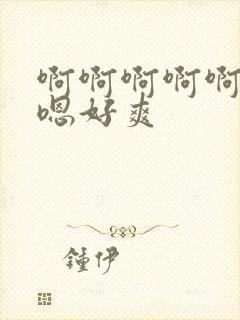 啊啊啊啊啊
嗯好爽
鍾伊